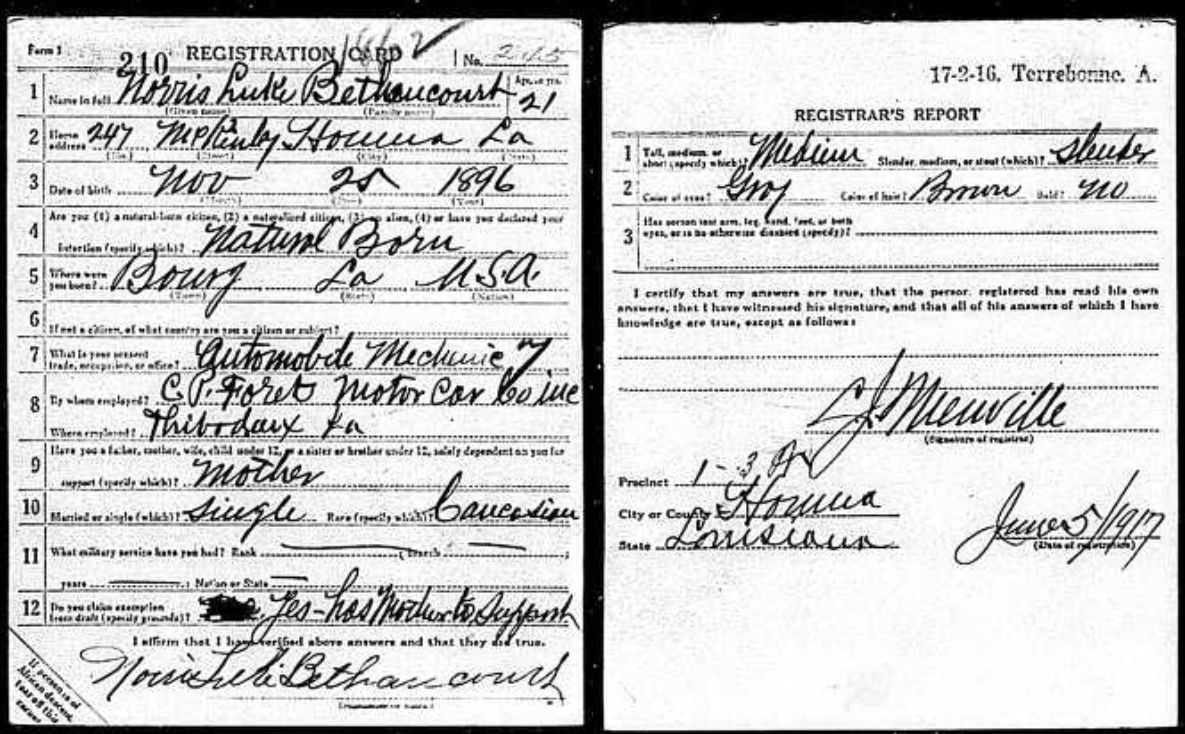 Form 1
210 REGISTRATION CARD No. 245
1 Name in full Norris Luke Bethancourt Age, in yrs. 21
(Given name) (Family name)
2 Home address 247 McKinly Houma La
(No.) (Street) (City) (State)
3 Date of birth Nov 25 1896
(Month) (Day) (Year)
4 Are you (1) a natural-born citizen, (2) a naturalized citizen, (3) an alien, (4) or have you declared your
intention (specify which)? Natural Born
5 Where were you born? Bourg La U.S.A.
(Town) (State) (Nation)
6 If not a citizen, of what country are you a citizen or subject?
7 What is your present trade, occupation, or office? Automobile Mechanic 7
8 By whom employed? C. P. Foret Motor Car Co inc
Where employed? Thibodaux La
9 Have you a father, mother, wife, child under 12, or a sister or brother under 12, solely dependent on you for
support (specify which)? Mother
10 Married or single (which)? Single Race (specify which)? Caucasian
11 What military service have you had? Rank branch
years Nation or State
12 Do you claim exemption from draft (specify grounds)? Yes - has Mother to Support
I affirm that I have verified above answers and that they are true.
Norris Luke Bethancourt
(Signature or mark)
If person is of
African descent,
tear off this
corner
17-2-16. Terrebonne. A.
REGISTRAR'S REPORT
1 Tall, medium, or short (specify which)? Medium Slender, medium, or stout (which)? Slender
2 Color of eyes? Gray Color of hair? Brown Bald? No
3 Has person lost arm, leg, hand, foot, or both
eyes, or is he otherwise disabled (specify)?
I certify that my answers are true, that the person registered has read his own
answers, that I have witnessed his signature, and that all of his answers of which I have
knowledge are true, except as follows:
C. J. Menville
(Signature of registrar)
Precinct 1-3
City or County Houma
State Louisiana
June 5/1917
(Date of registration)